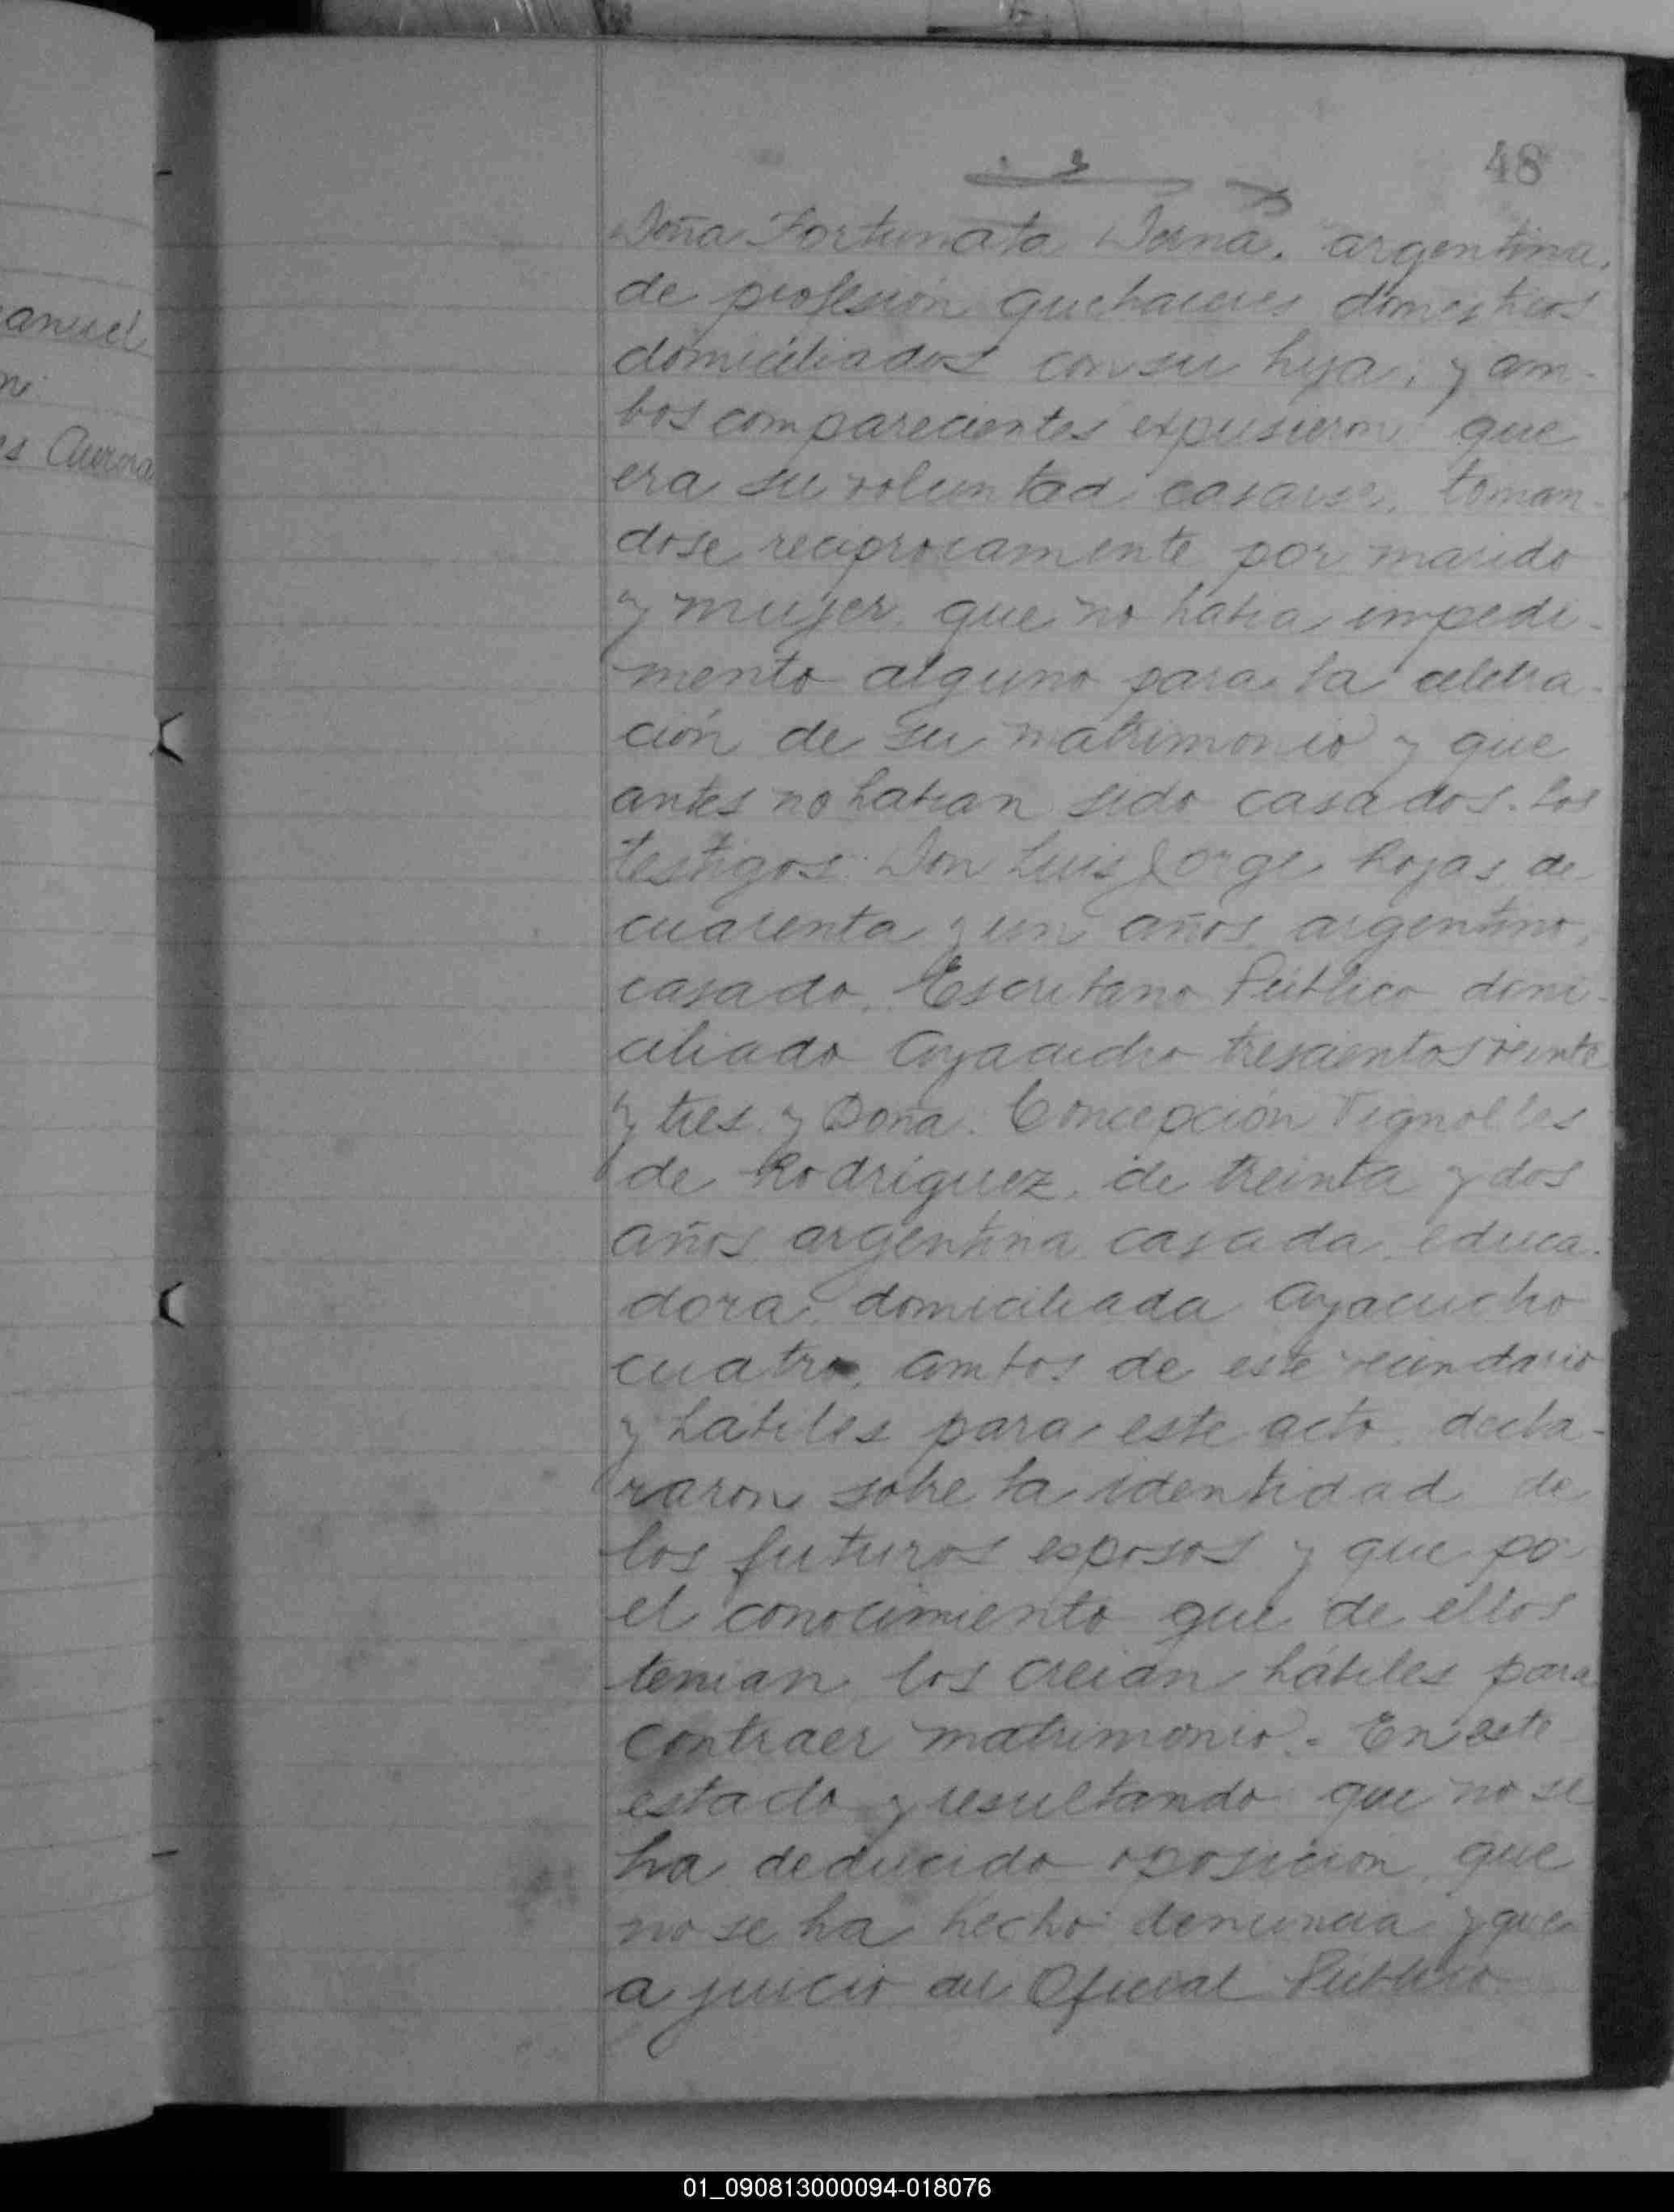 48
Doña Fortunata Serna. argentina.
de profesión quehaceres domesticos
domiciliados con su hija; y am-
bos comparecientes expusieron que
era su voluntad casarse, toman-
dose reciprocamente por marido
y mujer, que no habia impedi-
mento alguno para la celebra-
ción de su matrimonio y que
antes no habian sido casados. Los
testigos: Don Luis Jorge Rojas, de
cuarenta y un años, argentino,
casado, Escribano Público domi-
ciliado Ayacucho trescientos veinte
y tres y Doña. Concepción Vignolles
de Rodriguez, de treinta y dos
años, argentina casada, educa-
dora, domiciliada Ayacucho
cuatro, ambos de este vecindario
y habiles para este acto, decla-
raron sobre la identidad de
los futuros esposos y que po
el conocimiento que de ellos
tenian los creian hábiles para
contraer matrimonio. - En este
estado y resultando que no se
ha deducido oposicion, que
no se ha hecho denuncia y que
a juicio del Oficial Publico
anuel
es Aurora
01_090813000094-018076